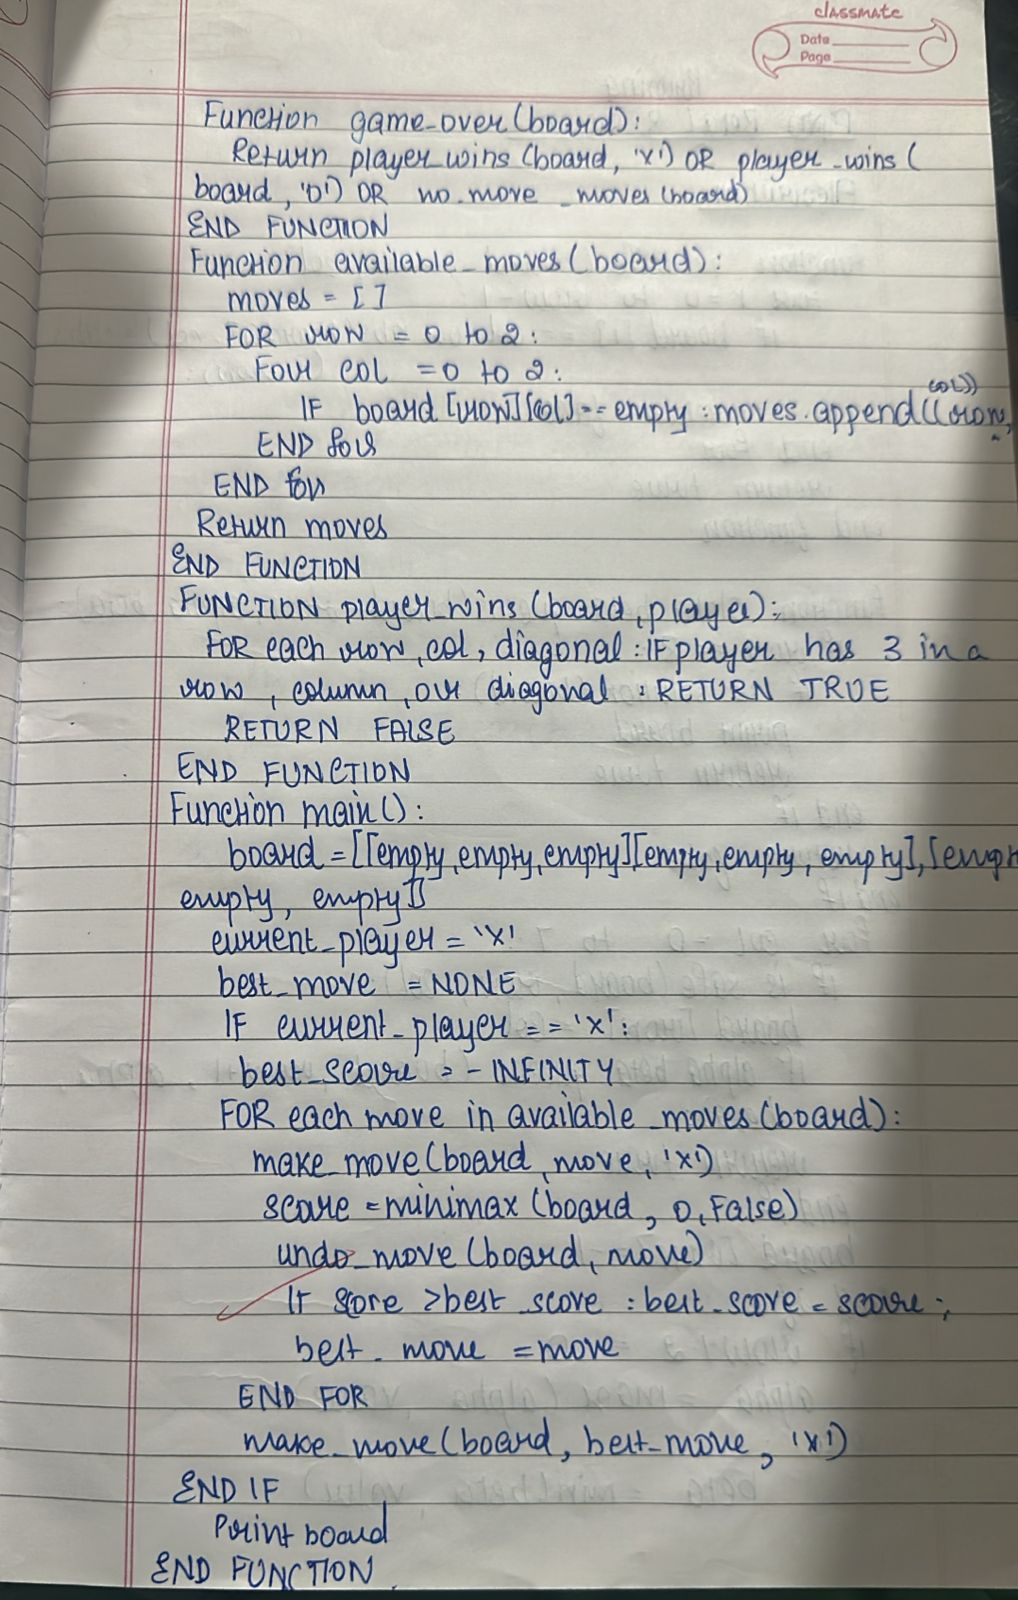 classmate
Date
Page
Function game_over(board):
Return player_wins (board, 'X') OR player_wins (
board, 'O') OR no_move_moves (board)
END FUNCTION
Function available_moves (board):
moves = []
FOR row = 0 to 2:
Four col = 0 to 2:
col))
IF board [row][col] == empty : moves.append((row,
END for
END for
Return moves
END FUNCTION
FUNCTION player_wins (board, player):
FOR each row, col, diagonal : IF player has 3 in a
row, column, or diagonal : RETURN TRUE
RETURN FALSE
END FUNCTION
Function main():
board = [[empty, empty, empty][empty, empty, empty], [emp
empty, empty]]
current_player = 'X'
best_move = NONE
IF current_player == 'X':
best_score = - INFINITY
FOR each move in available_moves (board):
make_move (board, move, 'X')
score = minimax (board, 0, False)
undo_move (board, move)
If score > best_score : best_score = score ;
best_move = move
END FOR
make_move (board, best_move, 'X')
END IF
Print board
END FUNCTION.